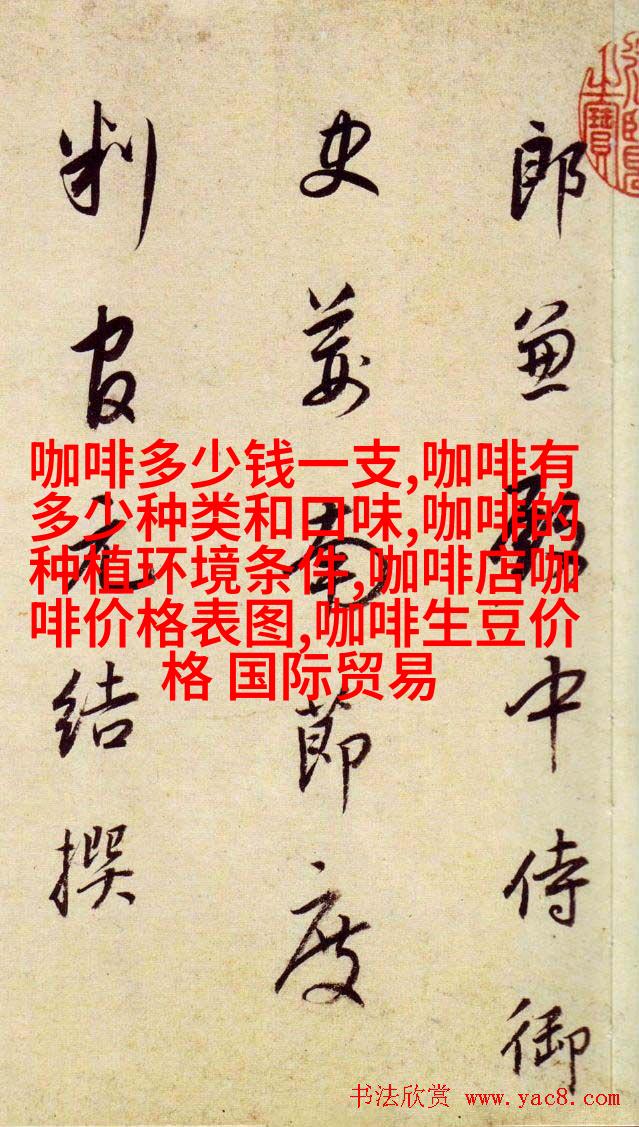 郎兼殿中侍御
史荊南節度
判官元結撰
咖啡多少钱一支,咖啡有
多少种类和口味,咖啡的
种植环境条件,咖啡店咖
啡价格表图,咖啡生豆价
格 国际贸易
书法欣赏 www.yac8.com